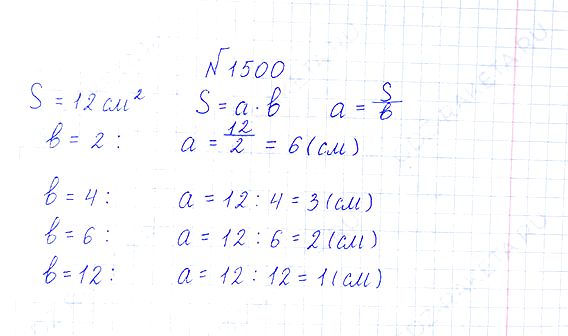 №1500
S = 12 см² S = a · b a = S/b
b = 2 : a = 12/2 = 6 (см)
b = 4 : a = 12 : 4 = 3 (см)
b = 6 : a = 12 : 6 = 2 (см)
b = 12 : a = 12 : 12 = 1 (см)